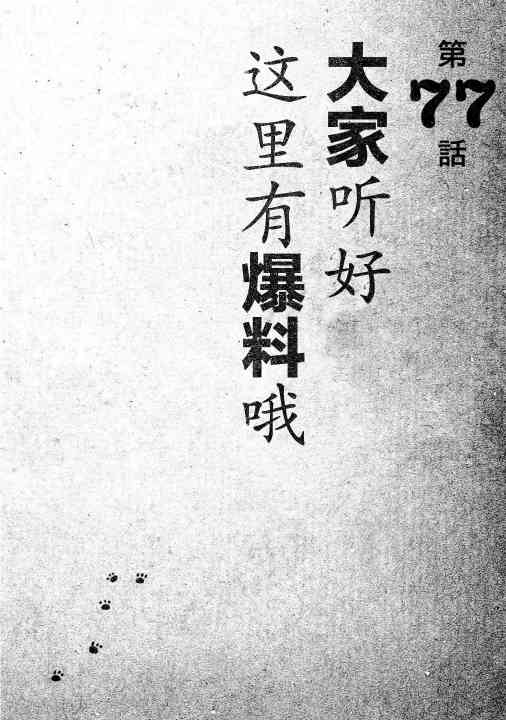 第77話
大家听好
这里有爆料哦